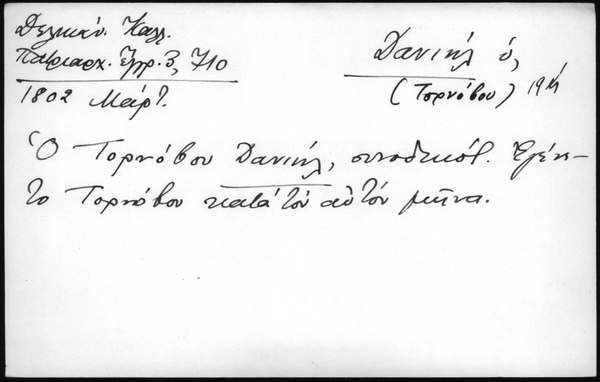 Δελικάν. Καλλ.
Πατριαρχ. Έγγρ. 3, 710
1802 Μάρτ.
Δανιήλ ὁ,
(Τορνόβου) 19
Ὁ Τορνόβου Δανιήλ, συνοδικός. Ἐγένε-
το Τορνόβου κατά τόν αὐτόν μῆνα.